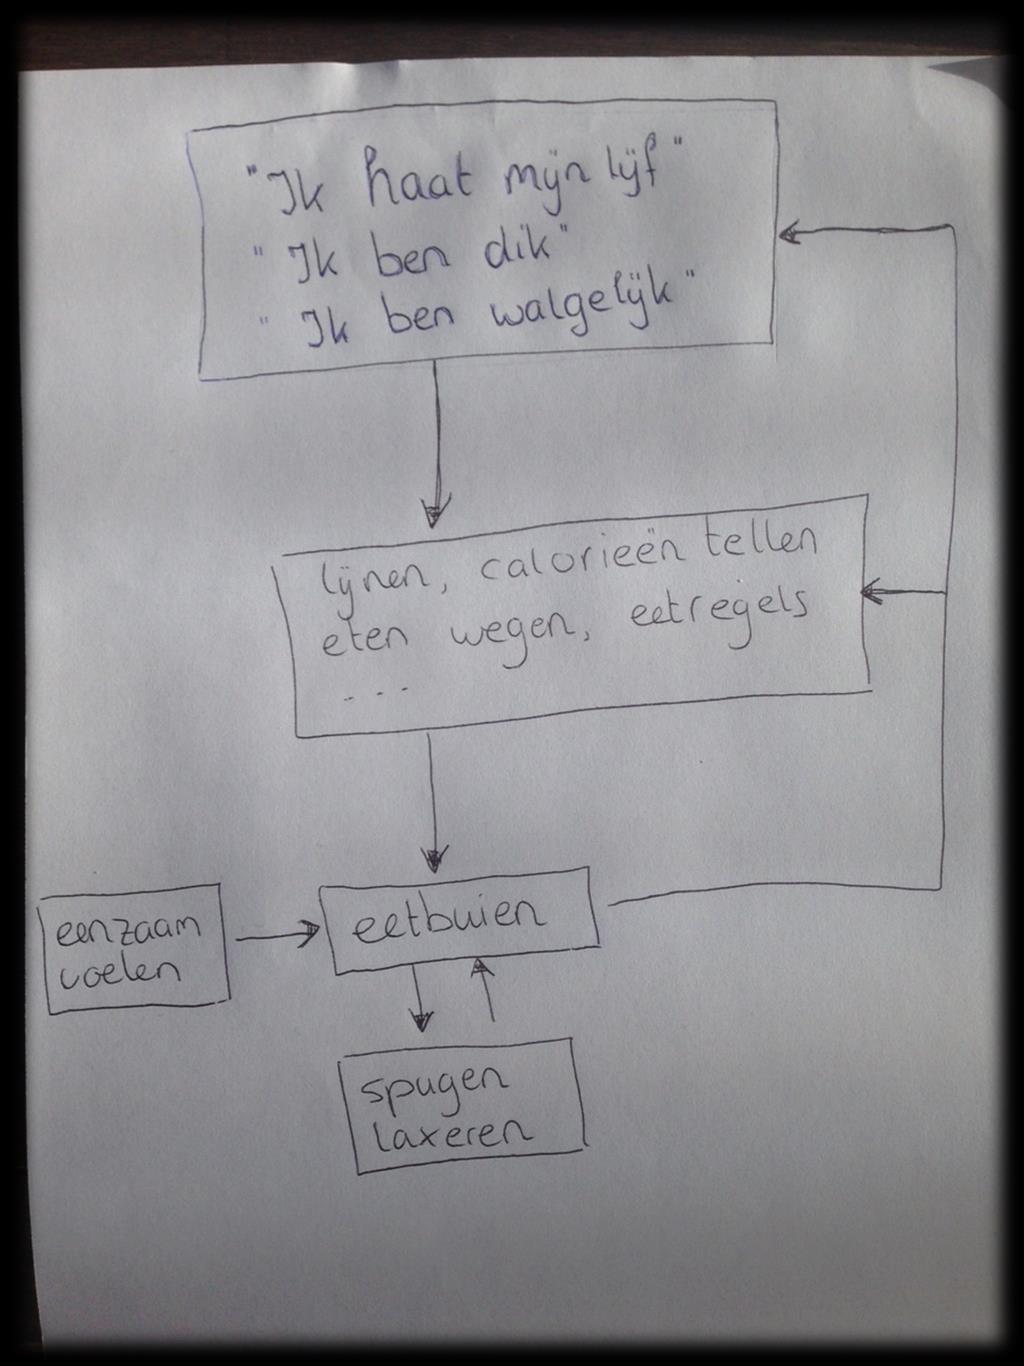 "Ik haat mijn lijf"
"Ik ben dik"
"Ik ben walgelijk"
lijnen, calorieën tellen
eten wegen, eetregels
...
eenzaam
voelen
eetbuien
spugen
laxeren